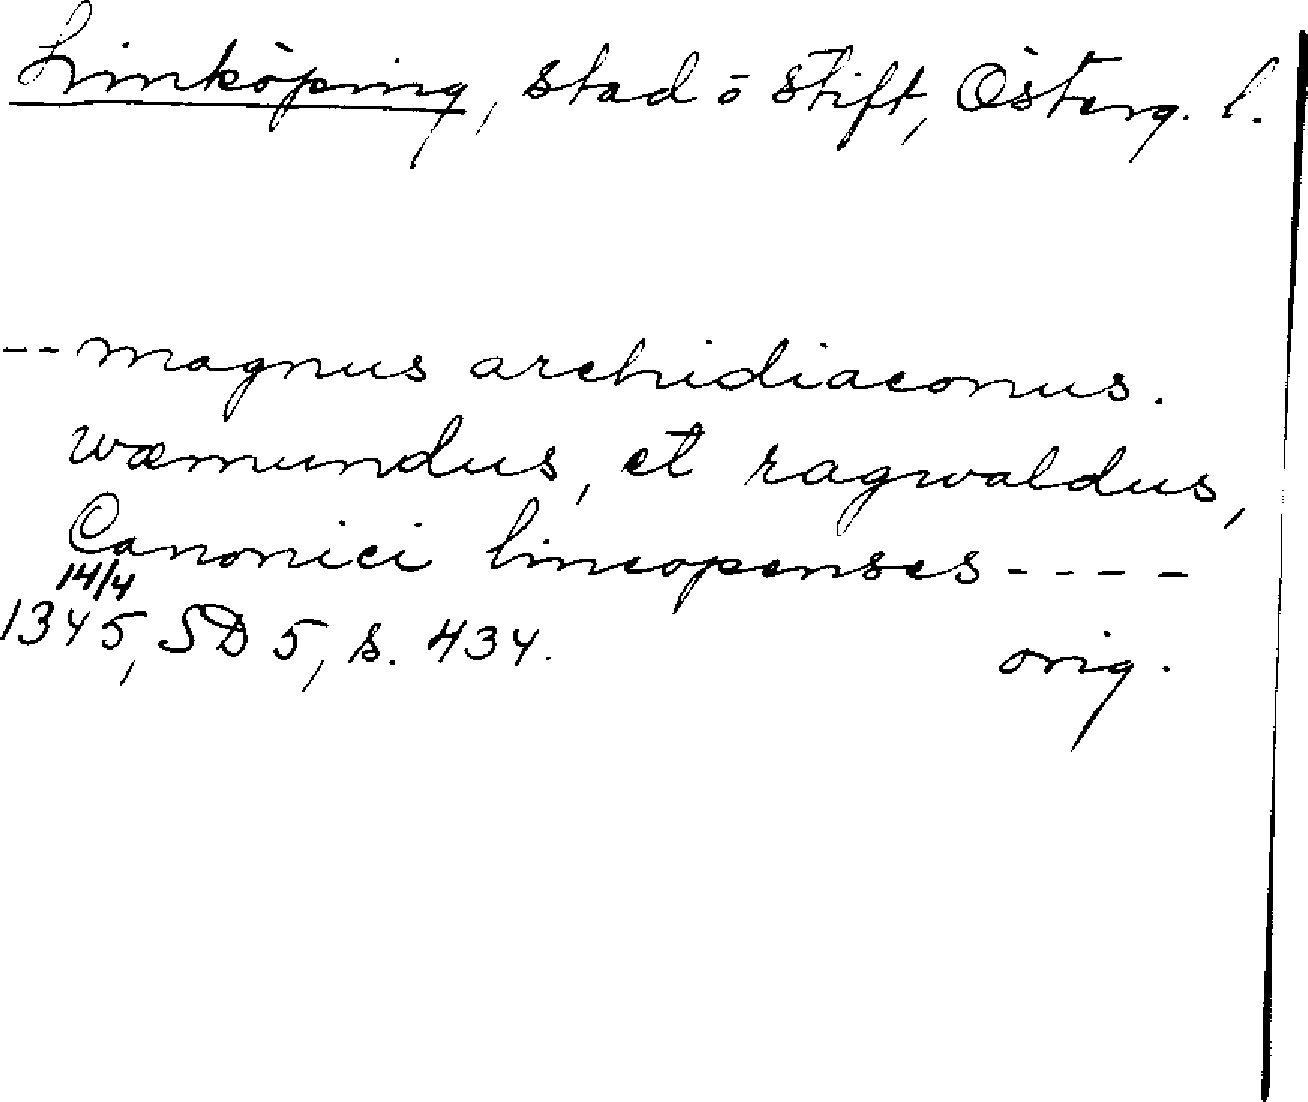 Linköping, stad o stift, Österg. l.
-- magnus archidiaconus.
wæmundus, et ragwaldus,
Canonici lincopenses ----
14/4
1345, SD 5, s. 434.
orig.